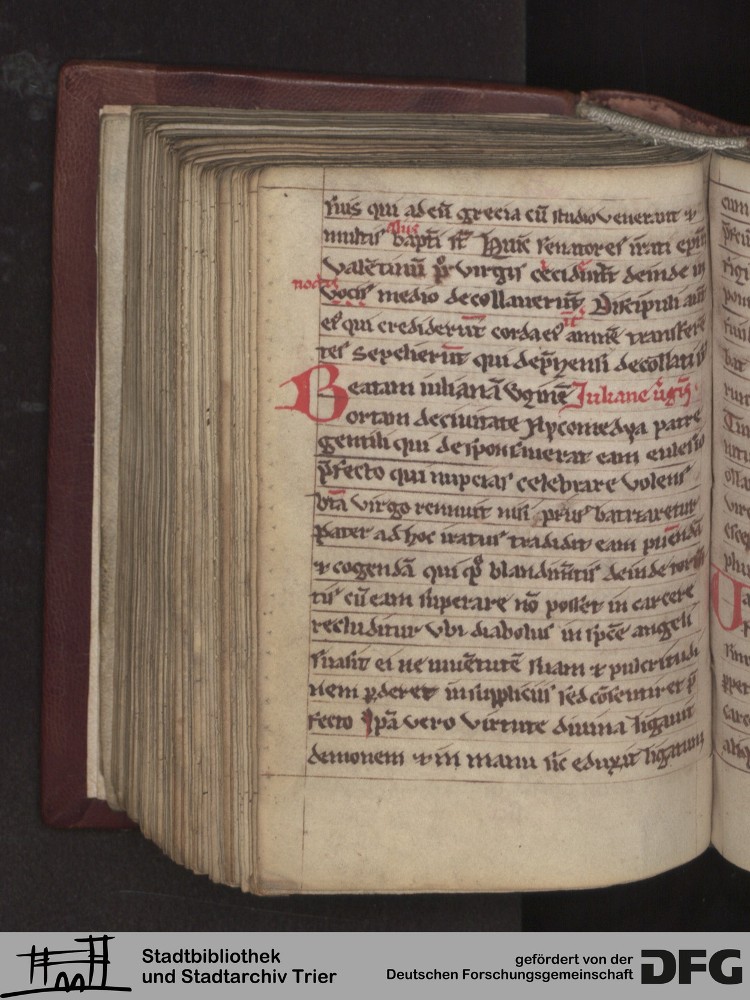 sius qui ad eū grecia cū studio venerant ⁊
multis bapti st̄ Hūc senatores irati ep̄m
Valētinū p̄t virgis cecider̄t deinde in
noctis
vocis medio decollauerūt Discipuli aūt
ei qui crediderūt cordaes annē transfere
tes sepelierūt qui dep̄hensi decollati st̄
Beatam iulianā v̓ginē Juliane ūgīs
ortam de ciuitate Nycomedya patre
gentili qui desponsauerat eam eulesio
p̄fecto qui nupcias celebrare volens
btā virgo rennuit nisi prius batizaretur
Pater ad hoc iratus tradidit eam puēndā
⁊ cogendā qui blandim̄tis deinde torm̄
tis cū eam superare nō posset in carcere
recluditur vbi diabolus in sp̄ce angeli
suasit ei ne iuuētutē suam ⁊ pulcritudi
nem p̱deret in suppliciis sed cōsentiret p̄
fecto ip̄a vero virtute diuina ligauit
demonem ⁊ in manu sic eduxit ligatum
Stadtbibliothek
und Stadtarchiv Trier
gefördert von der
Deutschen Forschungsgemeinschaft
DFG